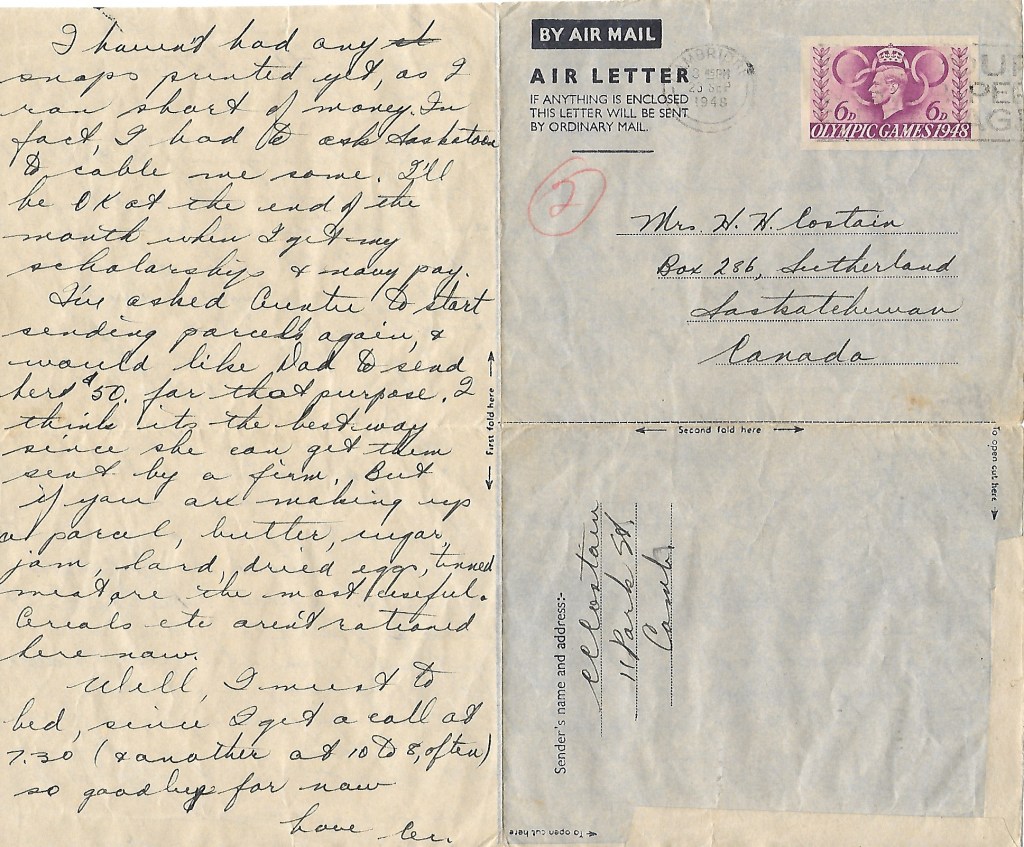 I haven't had any st
snaps printed yet, as I
ran short of money. In
fact, I had to ask Saskatoon
to cable me some. I'll
be OK at the end of the
month when I get my
scholarship & navy pay.
I've asked Auntie to start
sending parcels again, &
would like Dad to send
her $50. for that purpose. I
think its the best way
since she can get them
sent by a firm. But
if you are making up
a parcel, butter, sugar,
jam, lard, dried egg, tinned
meat are the most useful.
Cereals etc aren't rationed
here now.
Well, I must to
bed, since I get a call at
7.30 (& another at 10 to 8, often)
so goodbye for now
love Cec.
First fold here
BY AIR MAIL
AIR LETTER
IF ANYTHING IS ENCLOSED
THIS LETTER WILL BE SENT
BY ORDINARY MAIL.
SEP
1948
6D 6D
OLYMPIC GAMES 1948
2
Mrs. H. H. Costain
Box 286, Sutherland
Saskatchewan
Canada
Second fold here
To open cut here
Sender's name and address:-
CC Costain
11 Park St,
Camb.
To open cut here